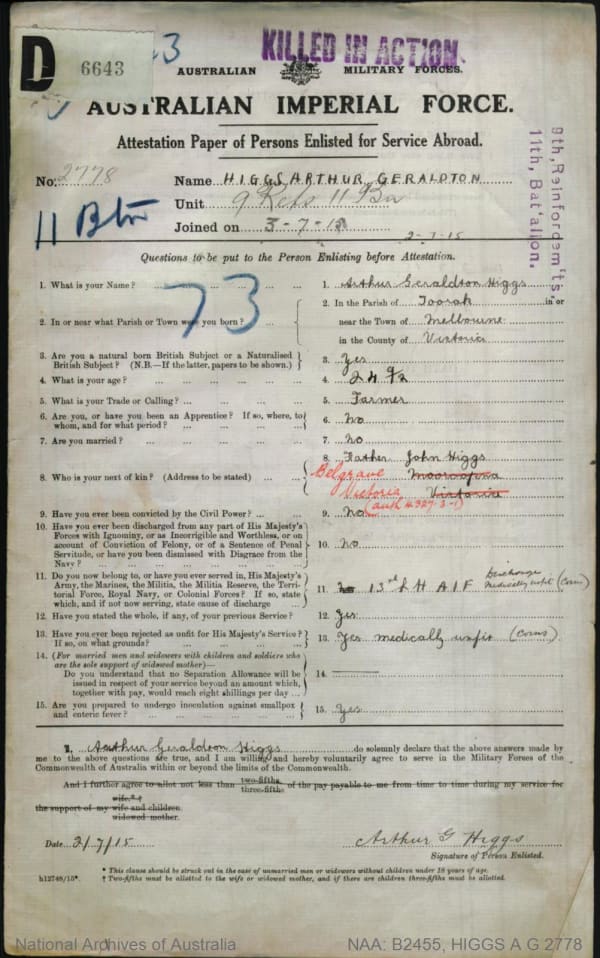 D 6643
KILLED IN ACTION.
AUSTRALIAN MILITARY FORCES.
AUSTRALIAN IMPERIAL FORCE.
Attestation Paper of Persons Enlisted for Service Abroad.
9th, Reinforcem'ts
11th, Bat'alion.
No. 2778
Name HIGGS ARTHUR GERALDTON
11 Btn
Unit 9 Refs 11 Bn
Joined on 3-7-15
2-7-15
Questions to be put to the Person Enlisting before Attestation.
73
1. What is your Name? ... 1. Arthur Geraldton Higgs
2. In or near what Parish or Town were you born? ... 2. In the Parish of Toorak in or
near the Town of Melbourne
in the County of Victoria
3. Are you a natural born British Subject or a Naturalised
British Subject? (N.B.—If the latter, papers to be shown.) 3. Yes
4. What is your age? ... 4. 24 9/12
5. What is your Trade or Calling? ... 5. Farmer
6. Are you, or have you been an Apprentice? If so, where, to
whom, and for what period? ... 6. No
7. Are you married? ... 7. No
8. Who is your next of kin? (Address to be stated) ... 8. Father John Higgs
Belgrave Mooroopna
Victoria Victoria
(auth 4327-3-1)
9. Have you ever been convicted by the Civil Power? ... 9. No
10. Have you ever been discharged from any part of His Majesty's
Forces with Ignominy, or as Incorrigible and Worthless, or on
account of Conviction of Felony, or of a Sentence of Penal
Servitude, or have you been Dismissed with Disgrace from the
Navy? ... 10. No
11. Do you now belong to, or have you ever served in, His Majesty's
Army, the Marines, the Militia, the Militia Reserve, the Terri-
torial Force, Royal Navy, or Colonial Forces? If so, state
which, and if not now serving, state cause of discharge ... 11. No 13th L H A I F Discharge Medically unfit (corns)
12. Have you stated the whole, if any, of your previous Service? 12. Yes
13. Have you ever been rejected as unfit for His Majesty's Service?
If so, on what grounds? ... 13. Yes medically unfit (corns)
14. (For married men and widowers with children and soldiers who
are the sole support of widowed mother)—
Do you understand that no Separation Allowance will be
issued in respect of your service beyond an amount which,
together with pay, would reach eight shillings per day ... 14.
15. Are you prepared to undergo inoculation against smallpox
and enteric fever? ... 15. Yes
I, Arthur Geraldton Higgs do solemnly declare that the above answers made by
me to the above questions are true, and I am willing and hereby voluntarily agree to serve in the Military Forces of the
Commonwealth of Australia within or beyond the limits of the Commonwealth.
And I further agree to allot not less than two-fifths three-fifths of the pay payable to me from time to time during my service for
wife*†
the support of my wife and children
widowed mother.
Date 2/7/15
Arthur G Higgs
Signature of Person Enlisted.
* This clause should be struck out in the case of unmarried men or widowers without children under 18 years of age.
h12748/15*. † Two-fifths must be allotted to the wife or widowed mother, and if there are children three-fifths must be allotted.
National Archives of Australia NAA: B2455, HIGGS A G 2778